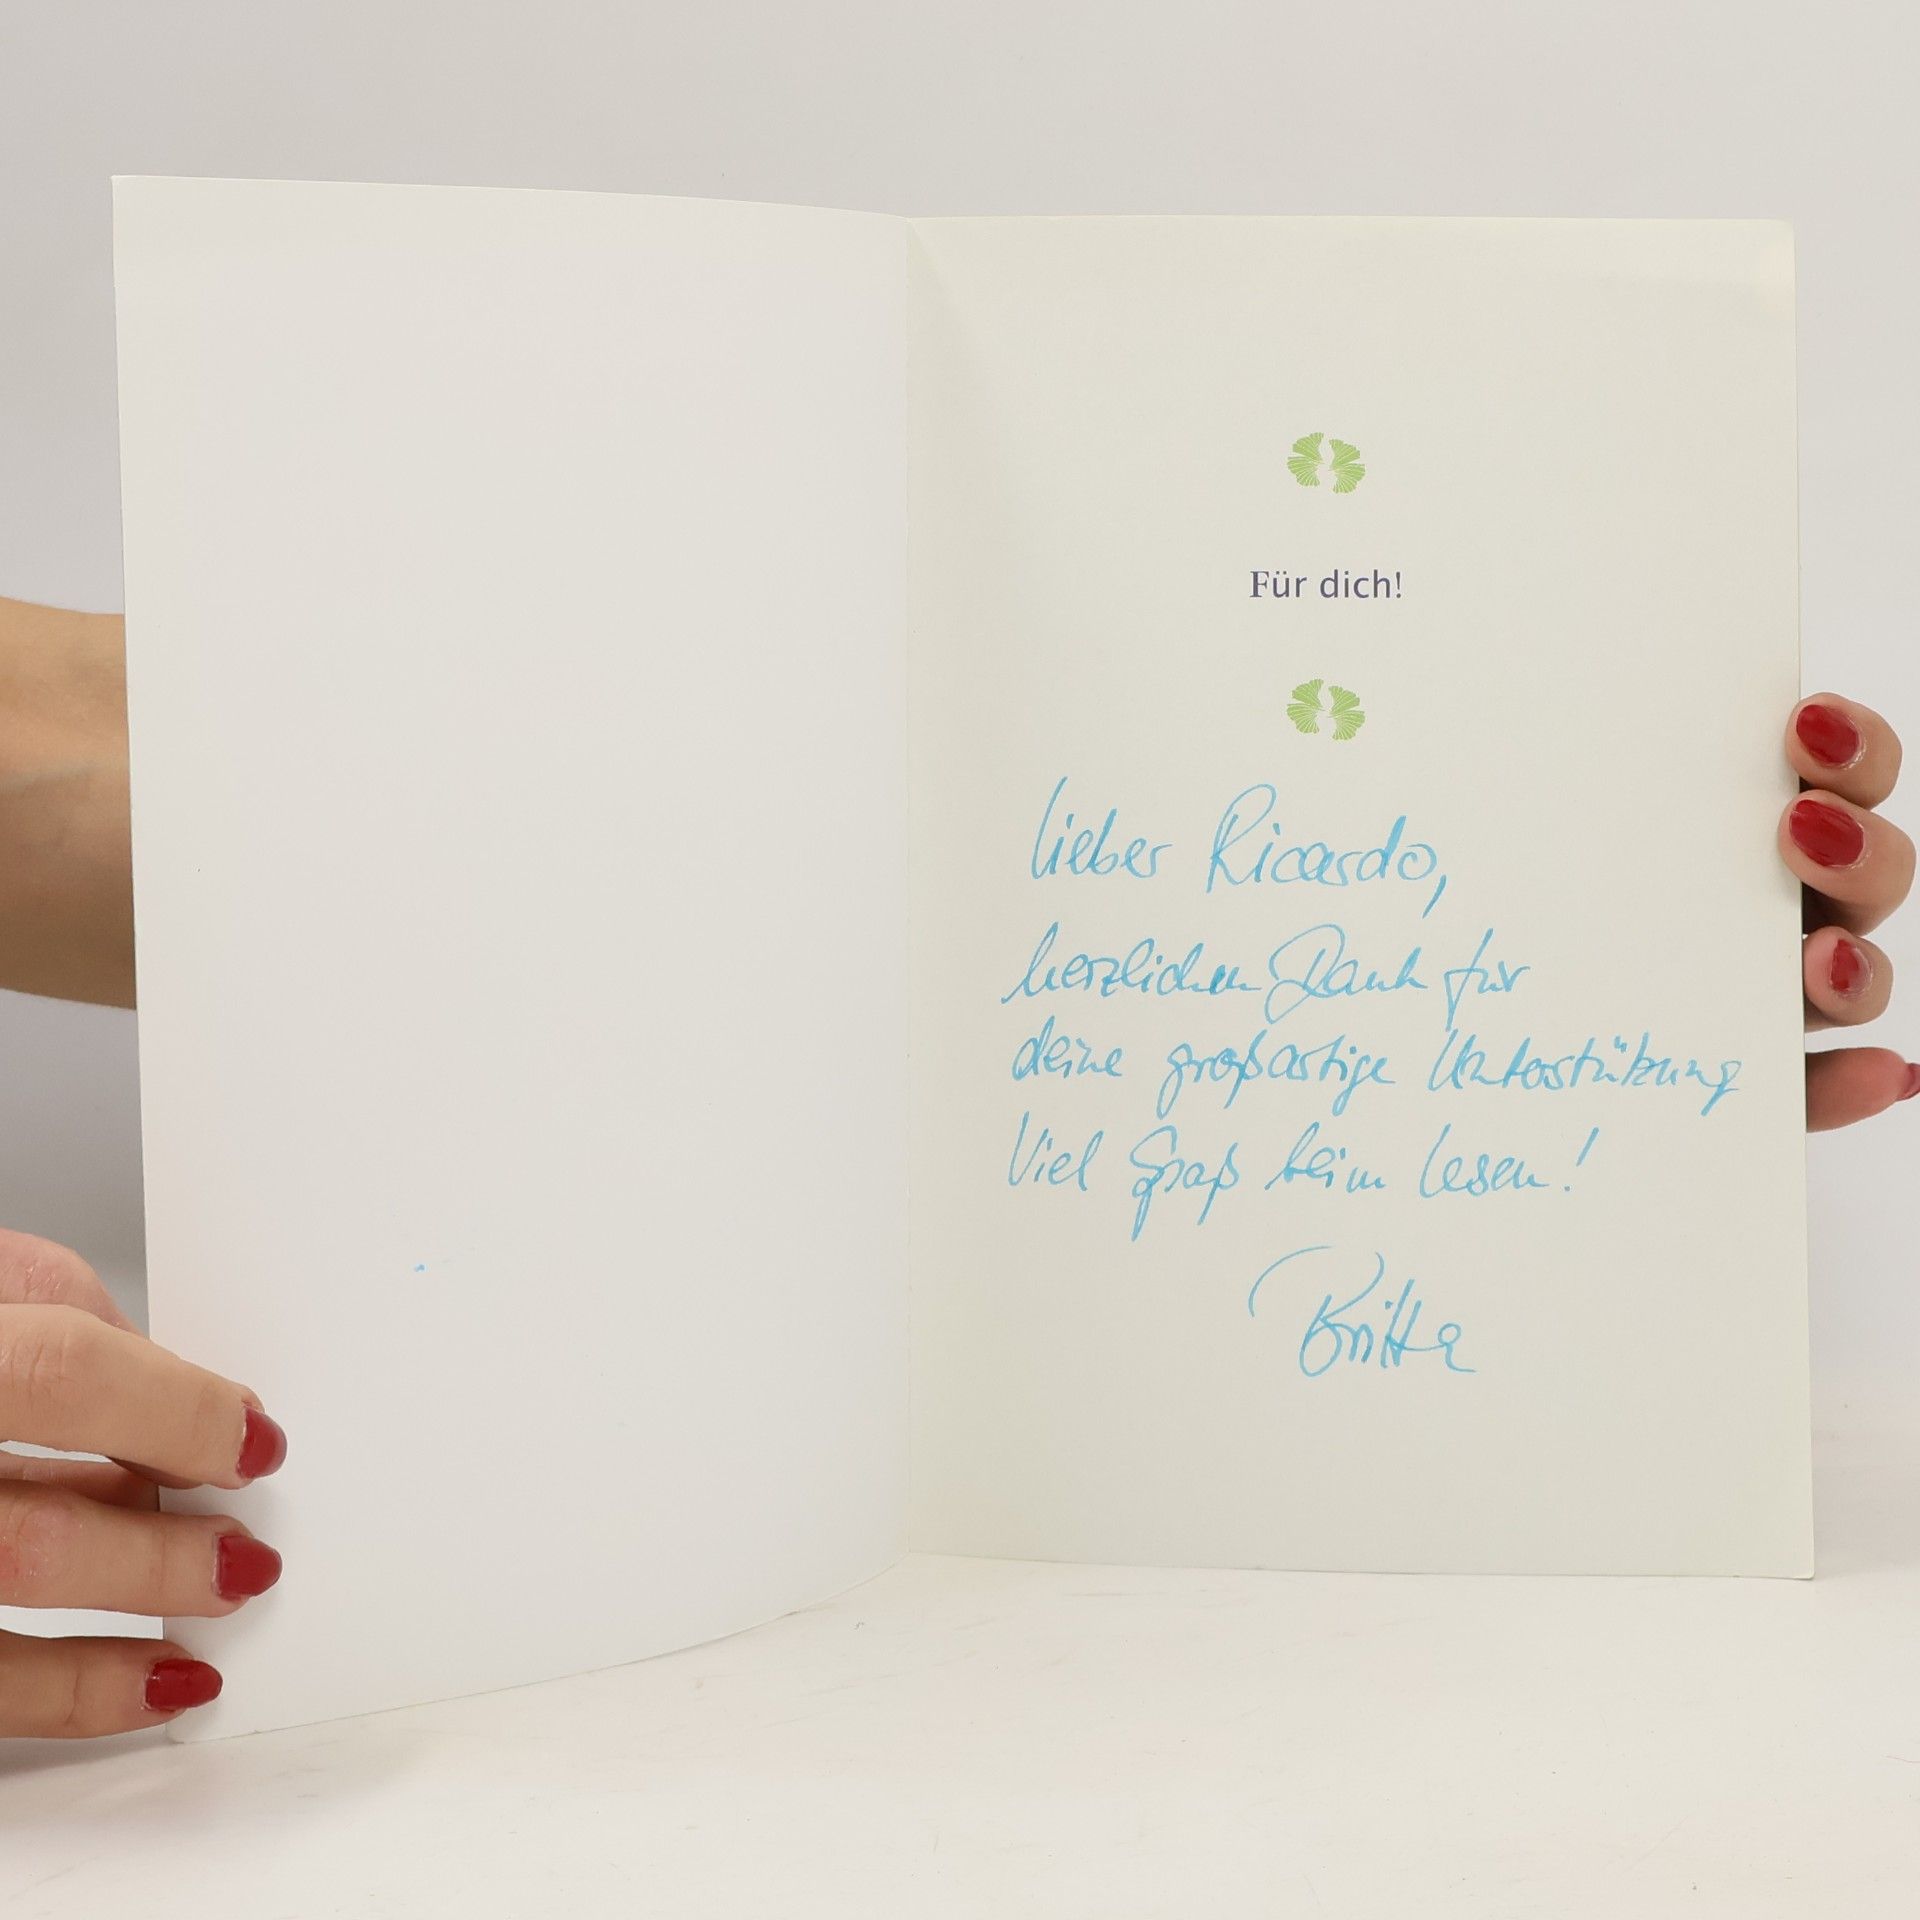 Für dich!
Lieber Ricardo,
herzlichen Dank für
deine großartige Unterstützung
Viel Spaß beim Lesen!
Britta